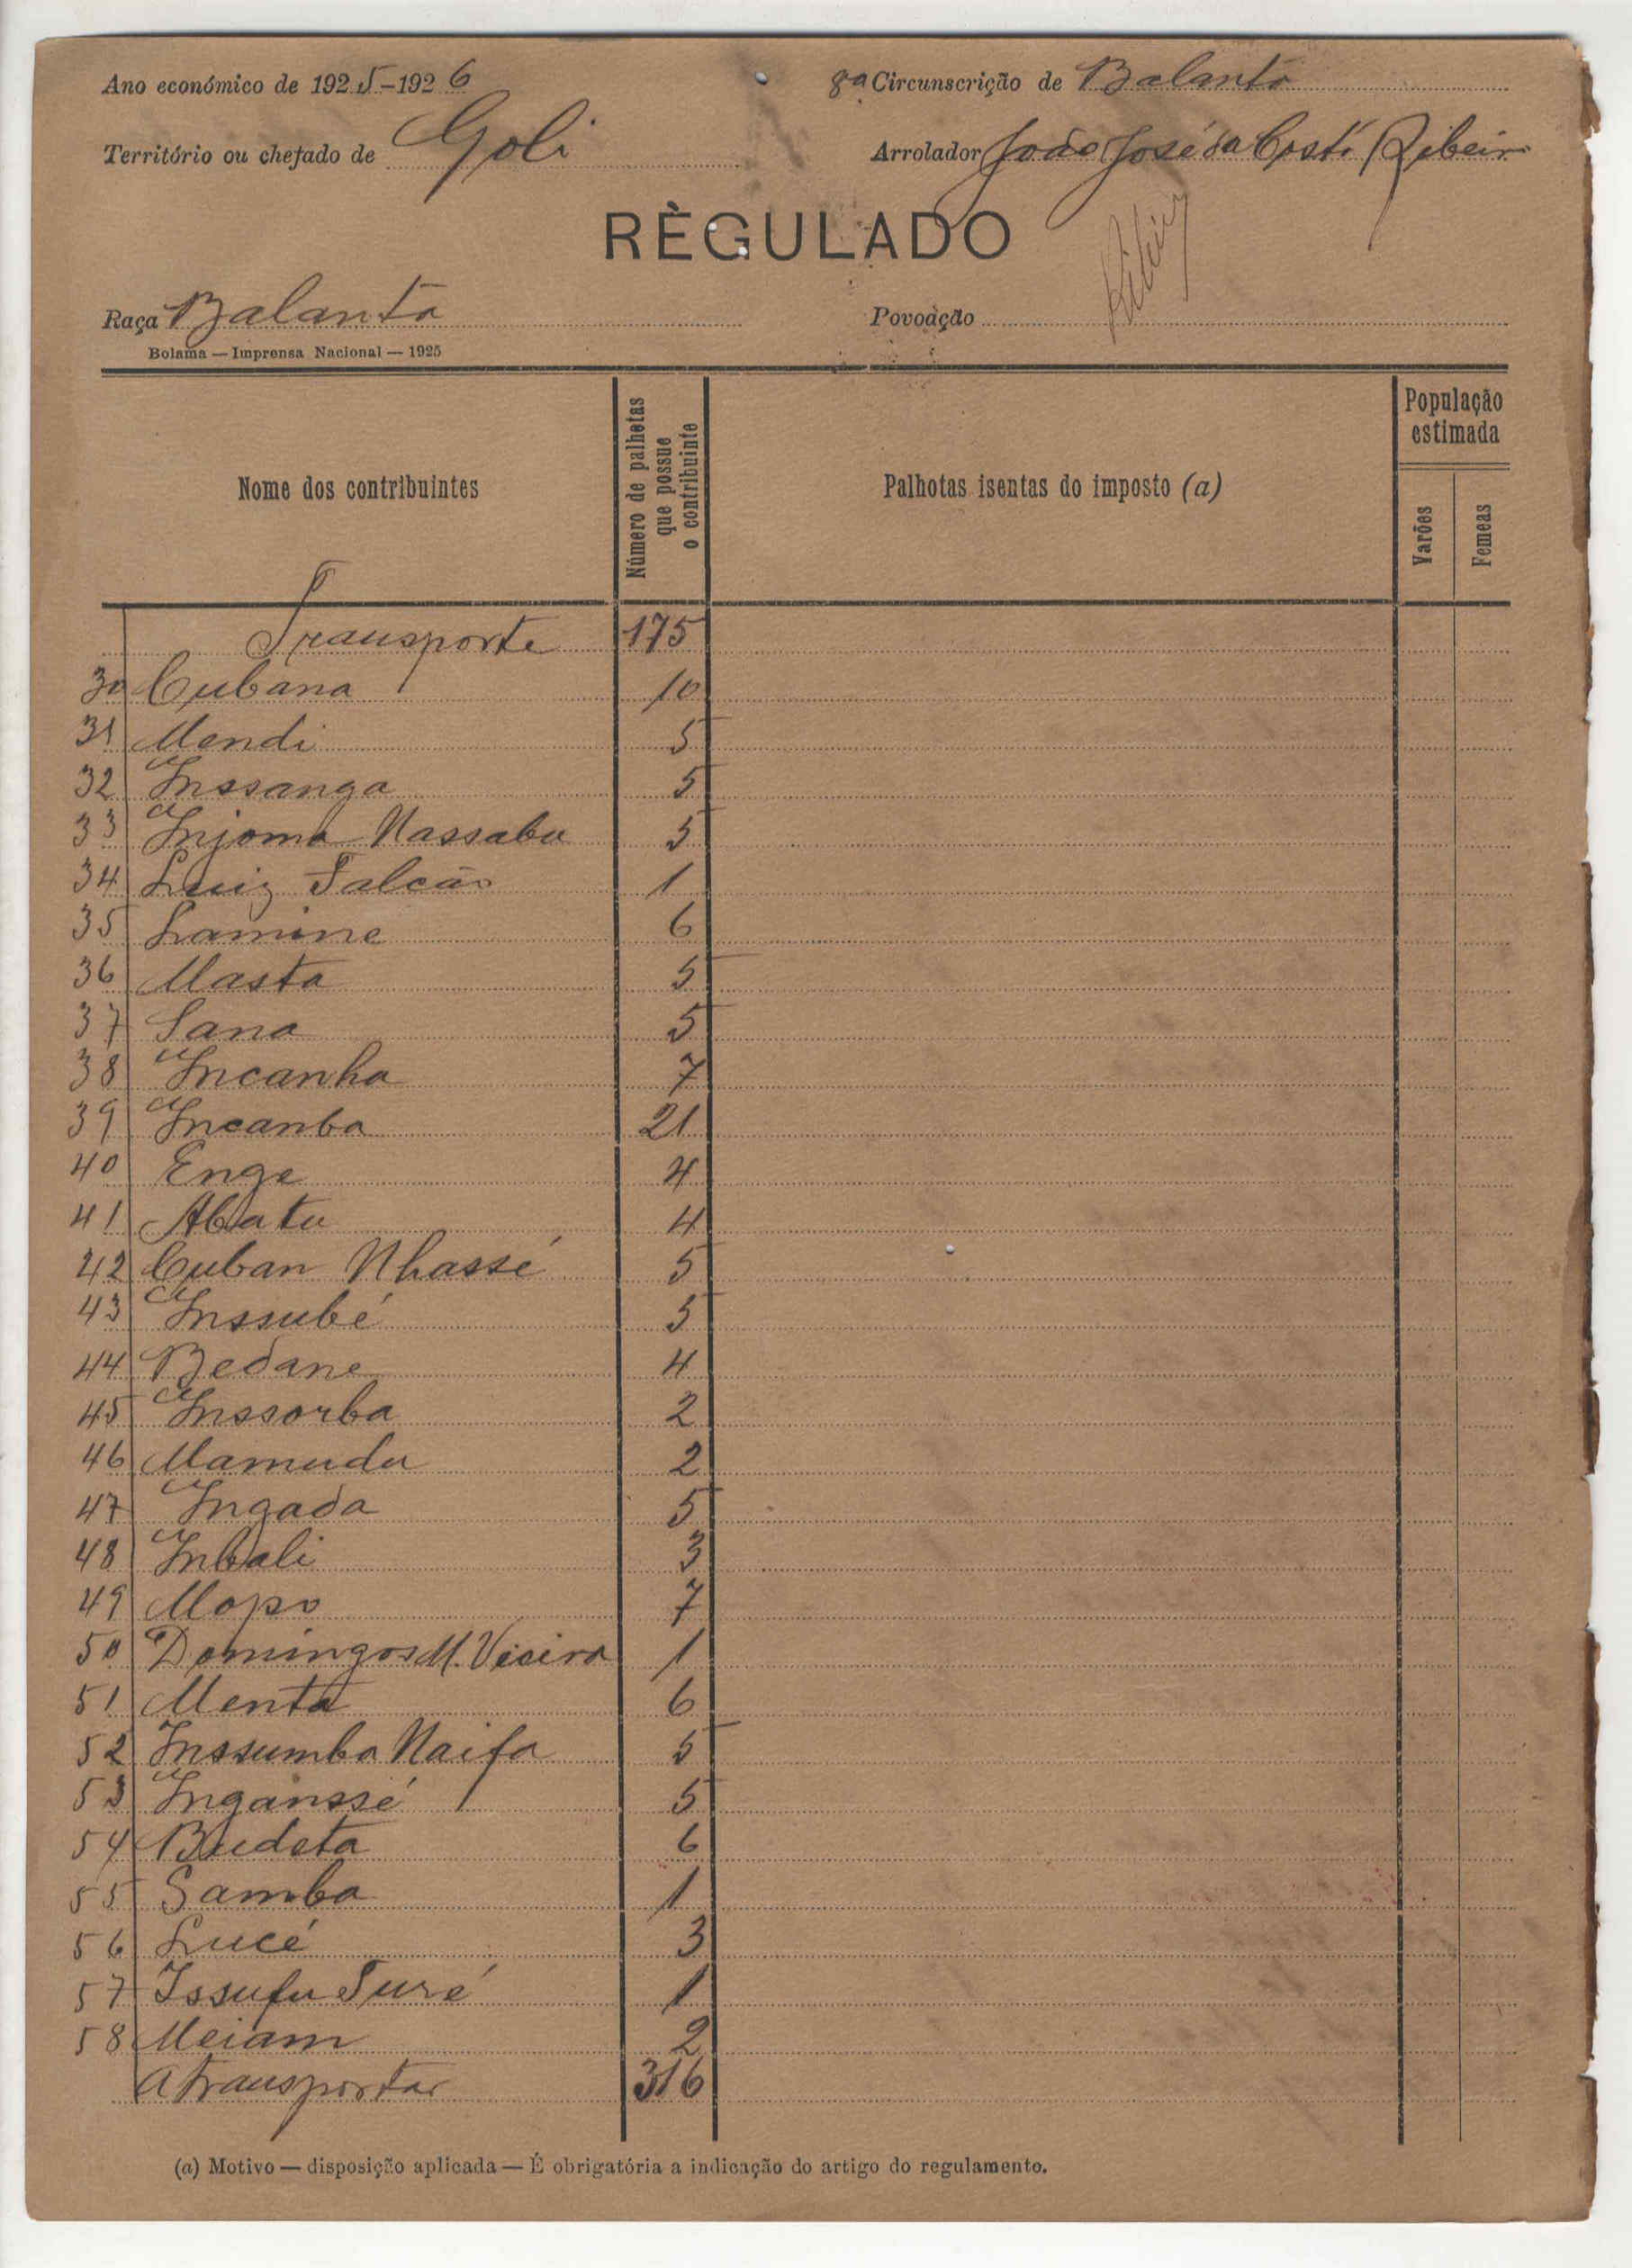 Ano económico de 1925-1926
8ª Circunscrição de Balanta
Território ou chefado de Goli
Arrolador João José da Costa Ribeiro
RÈGULADO
Ribeiro
Raça Balanta
Povoação
Bolama — Imprensa Nacional — 1925
Nome dos contribuintes
Número de palhetas que possue o contribuinte
Palhotas isentas do imposto (a)
População estimada
Varões
Femeas
Transporte 175
30 Cubana 10
31 Mendi 5
32 Inssanga 5
33 Injoma Nassabu 5
34 Luiz Falcão 1
35 Lamine 6
36 Masta 5
37 Sana 5
38 Incanha 7
39 Incanba 21
40 Enge 4
41 Abatu 4
42 Cuban Nhassé 5
43 Inssubé 5
44 Bedane 4
45 Inssorba 2
46 Mamudu 2
47 Ingada 5
48 Inbali 3
49 Mopo 7
50 Domingos M. Vieira 1
51 Menta 6
52 Inssumba Naifa 5
53 Inganssé 5
54 Budeta 6
55 Samba 1
56 Lucé 3
57 Issufu Turé 1
58 Meiam 2
A transportar 316
(a) Motivo — disposição aplicada — É obrigatória a indicação do artigo do regulamento.